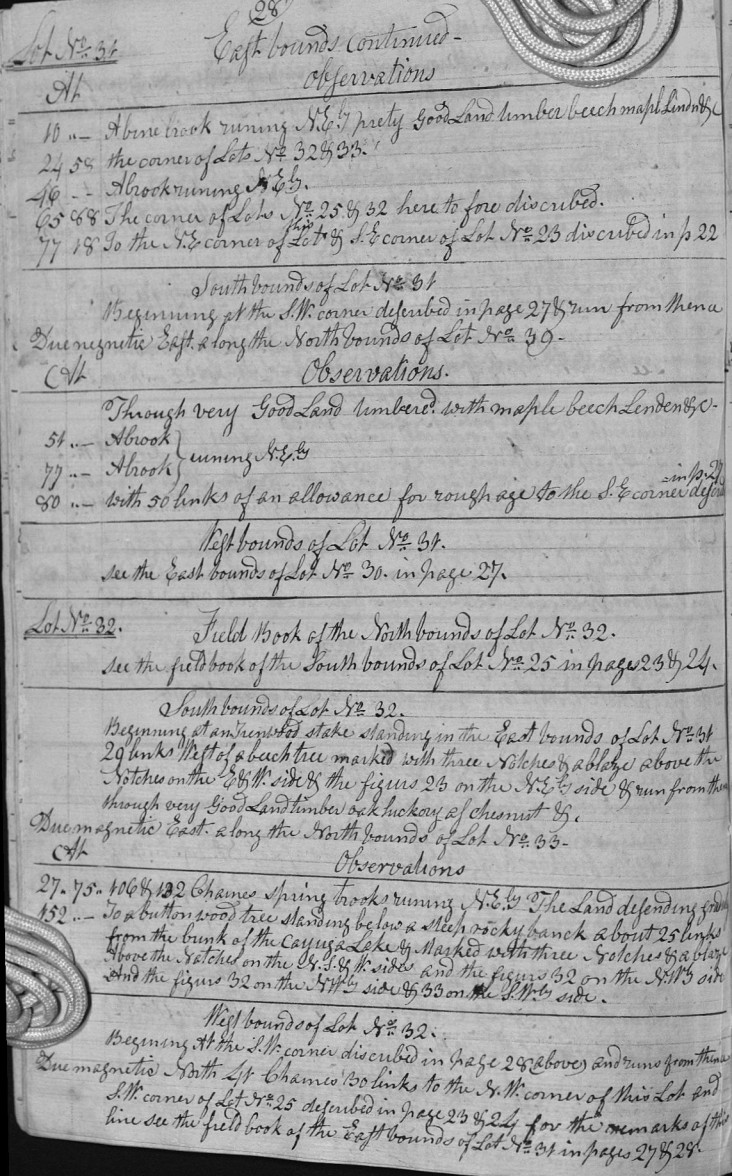 28
Lot No. 31 East bounds Continued -
At Observations
10 „ — A bine brook runing N.E.ly prety Good Land timber beech mapl Lindn &c
24 58 the corner of Lots No. 32 & 33.
46 - - A brook runing N.E.ly.
65 88 The corner of Lots No. 25 & 32 here to fore discribed.
77 18 To the N.E corner of this Lot & S.E corner of Lot No. 23 discribed in p 22
South bounds of Lot No. 31
Beginning at the S.W. corner described in page 27 & run from thence
Due negnetic East. along the North bounds of Lot No. 39 -
At Observations.
Through very Good Land timbered. with maple beech Lenden &c -
51 „ — A brook
77 „ — A brook } runing N.E.ly
80 „ — with 50 links of an allowance for roughage to the S.E corner descrd in p. 27
West bounds of Lot No. 31.
see the East bounds of Lot No. 30. in page 27.
Lot No. 32. Field Book of the North bounds of Lot No. 32.
see the field book of the South bounds of Lot No. 25 in pages 23 & 24.
South bounds of Lot No. 32.
Beginning at an Irenwood stake standing in the East bounds of Lot No. 31
29 links West of a beech tree marked with three Notches & a blaze above the
Notches on the E & W. side & the figurs 23 on the N.E.ly side & run from then
through very Good Land timber oak hickory as chesnut &.
Due magnetic East. along the North bounds of Lot No. 33 -
At Observations
27. 75. 106 & 132 Chaines spring brooks runing N.E.ly The Land desending
152 „ — To a button wood tree standing below a steep rocky banck about 25 links
from the bank of the Cayuga Lake & Marked with three Notches & a blaze
Above the Notches on the N. S. & W. sides and the figurs 32 on the N.W.ly side
And the figurs 32 on the N.W.ly side & 33 on the S.W.ly side.
West bounds of Lot No. 32.
Begining At the S.W. corner discribed in page 28 (above) and runs from thence
Due magnetic North 41 Chaines 30 links to the N.W. corner of this Lot and
S.W. corner of Lot No. 25 described in page 23 & 24 for the remarks of this
line see the field book of the East bounds of Lot No. 31 in pages 27 & 28.